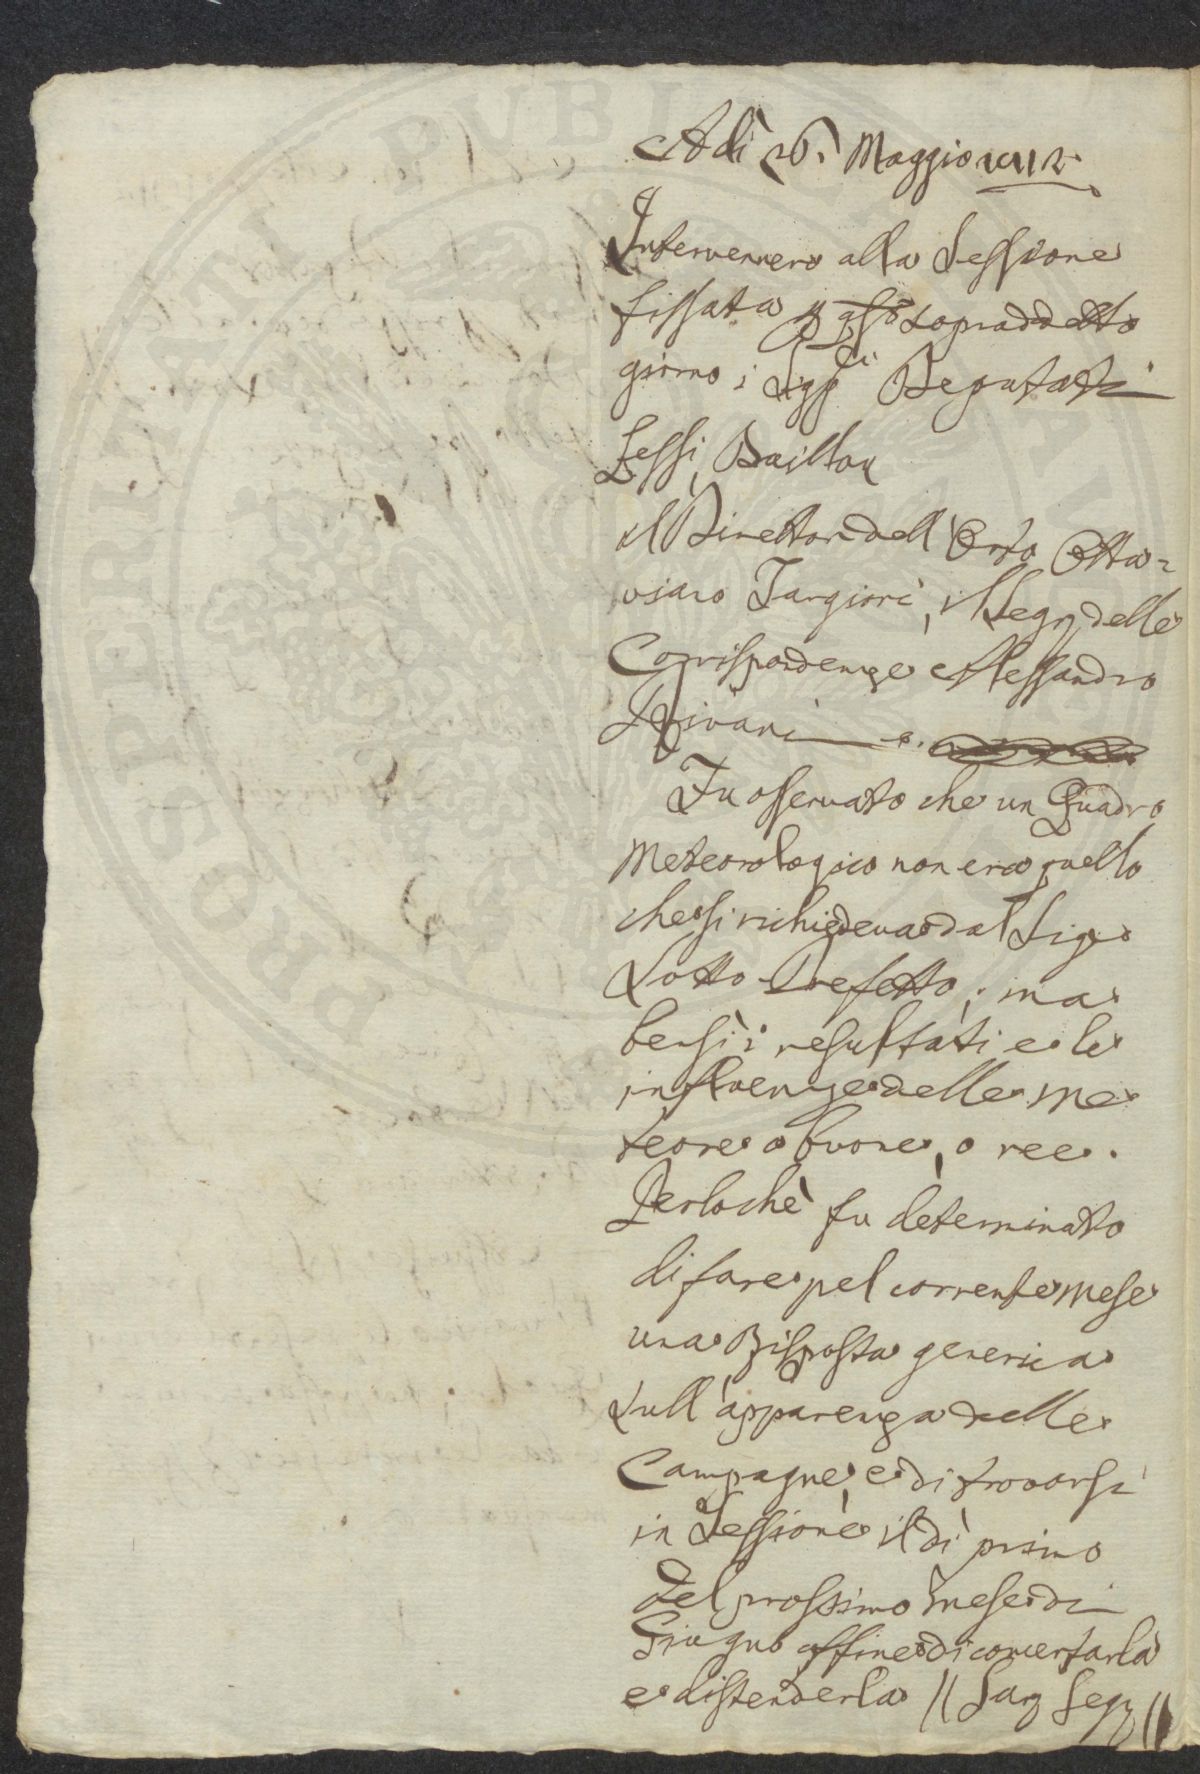 Adì 26. Maggio 1812.
Intervennero alla Sessione
fissata p qsto sopraddetto
giorno i Sigg.ri Deputati
Lessi, Baillou
il Direttore dell'Orto Otta=
viano Targioni, il Segr delle
Corrispondenze Alessandro
Rivani
Fu osservato che un Quadro
Meteorologico non era quello
che si richiedeva dal Sige
Sotto-Prefetto; ma
bensì i resultati e le
influenze delle me
teore o buone, o ree.
Perlochè fu determinato
di fare pel corrente mese
una Risposta generica
sull'apparenza delle
Campagne, e di trovarsi
in Sessione il dì primo
del prossimo mese di
Giugno affine di concertarla
e distenderla // Segr //
PROSPERITATI PUBLICAE